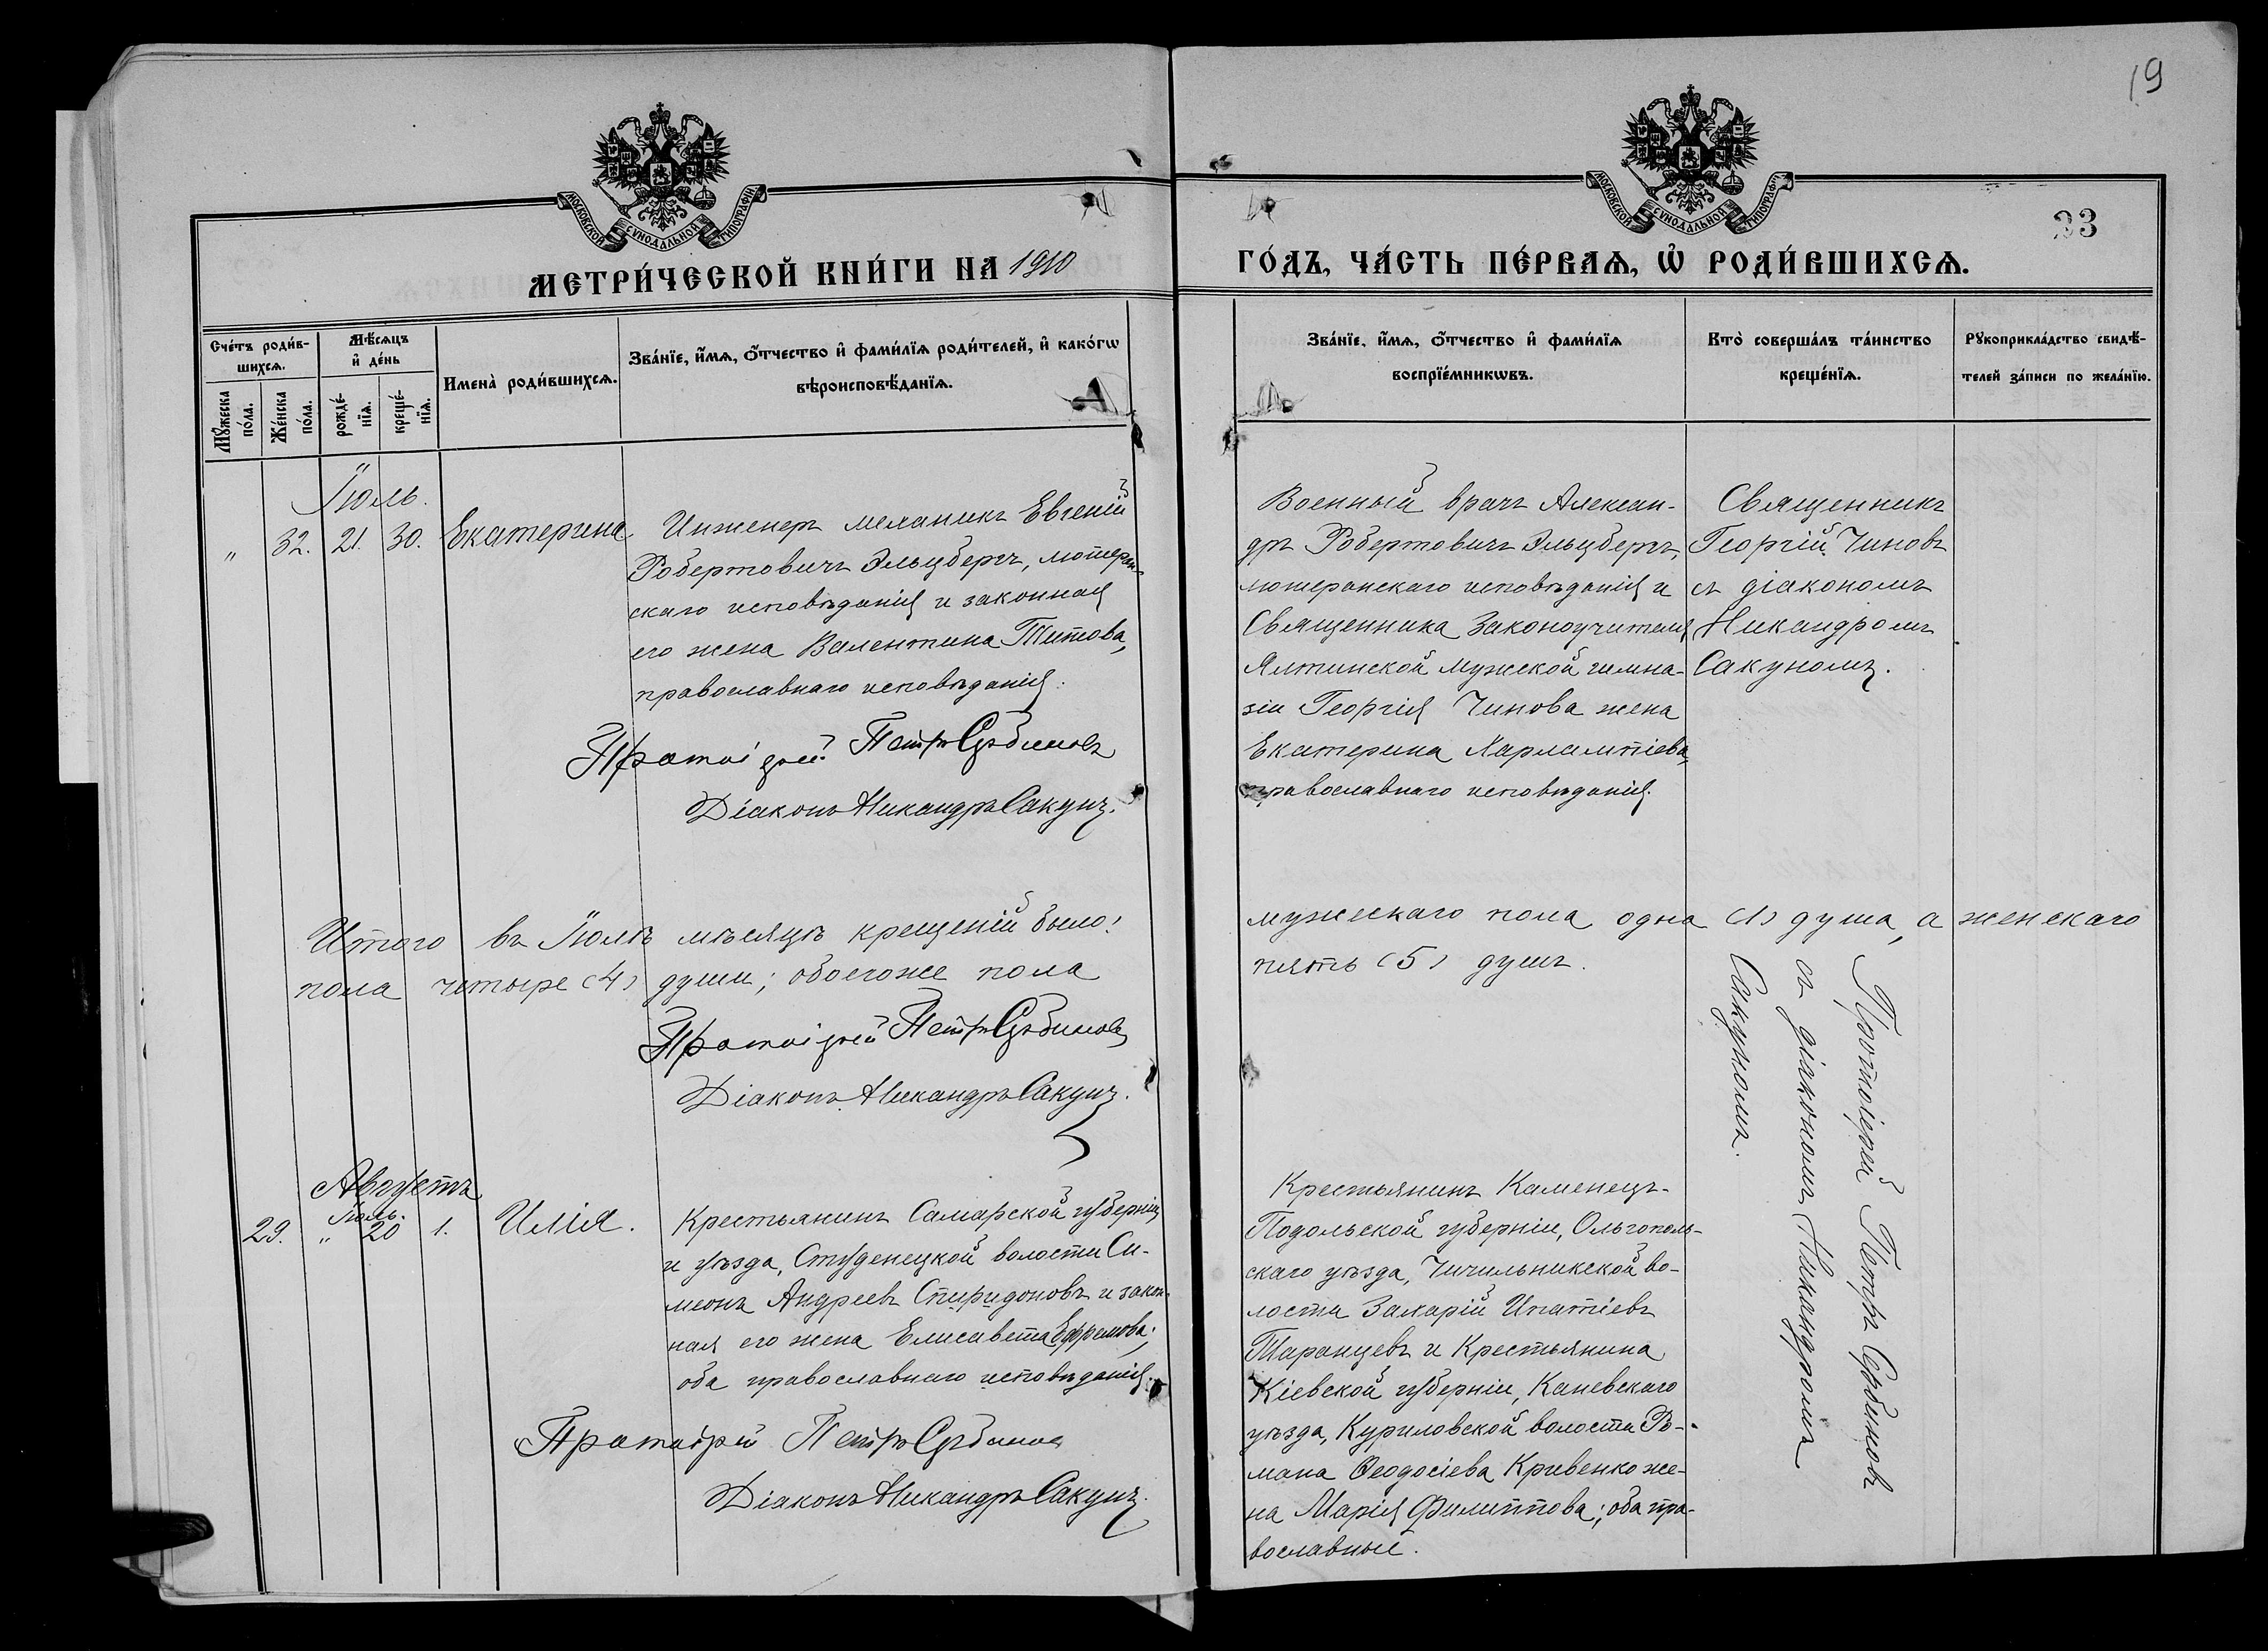 19
МОСКОВСКОЙ СУНОДАЛЬНОЙ ТИПОГРАФІИ
МОСКОВСКОЙ СУНОДАЛЬНОЙ ТИПОГРАФІИ
33
МЕТРИ́ЧЕСКОЙ КНИ́ГИ НА 1910
ГО́ДЪ, ЧА́СТЬ ПЕ́РВАѦ, Ѡ҆ РОДИ́ВШИХСѦ.
Сче́тъ роди́в-
шихсѧ.
Мѣ́сѧцъ
и҆ де́нь
Мꙋ́жеска
по́ла.
Же́нска
по́ла.
рожде́-
нїѧ.
креще́-
нїѧ.
Имена̀ роди́вшихсѧ.
Зва́нїе, и҆́мѧ, ѻ҆́тчество и҆ фами́лїѧ роди́телей, и҆ како́гѡ
вѣроисповѣ́данїѧ.
Зва́нїе, и҆́мѧ, ѻ҆́тчество и҆ фами́лїѧ
воспрїе́мникѡвъ.
Кто̀ соверша́лъ та́инство
креще́нїѧ.
Рꙋкоприкла́дство свидѣ́-
телей за́писи по жела́нїю.
Іюль.
" 32. 21. 30. Екатерина
Инженеръ механикъ Евгеній
Робертовичъ Эльцбергъ, лютеран-
скаго исповѣданія и законная
его жена Валентина Титова,
православнаго исповѣданія.
Протоіерей Петръ Сербиновъ
Діаконъ Никандръ Сакунъ.
Военный врачъ Алексан-
дръ Робертовичъ Эльцбергъ,
лютеранскаго исповѣданія и
Священника Законоучителя
Ялтинской мужской гимна-
зіи Георгія Чинова жена
Екатерина Харлампіева,
православнаго исповѣданія.
Священникъ
Георгій Чиновъ
съ діакономъ
Никандромъ
Сакуномъ.
Итого въ Іюлѣ мѣсяцѣ крещеній было: мужескаго пола одна (1) душа, а женскаго
пола четыре (4) души; обоегоже пола пять (5) душъ.
Протоіерей Петръ Сербиновъ
Діаконъ Никандръ Сакунъ.
Августъ
Іюль.
29. " 20 1. Илія.
Крестьянинъ Самарской губерніи
и уѣзда, Студенецкой волости Си-
меонъ Андреевъ Спиридоновъ и закон-
ная его жена Елисавета Ефремова;
оба православнаго исповѣданія.
Протоіерей Петръ Сербиновъ
Діаконъ Никандръ Сакунъ.
Крестьянинъ Каменецъ-
Подольской губерніи, Ольгополь-
скаго уѣзда, Чичильникской во-
лости Захарій Ипатіевъ
Таранцевъ и Крестьянина
Кіевской губерніи, Каневскаго
уѣзда, Куриловской волости Ро-
мана Ѳеодосіева Кривенко же-
на Марія Филиппова; оба пра-
вославные.
Протоіерей Петръ Сербиновъ
съ діакономъ Никандромъ
Сакуномъ.